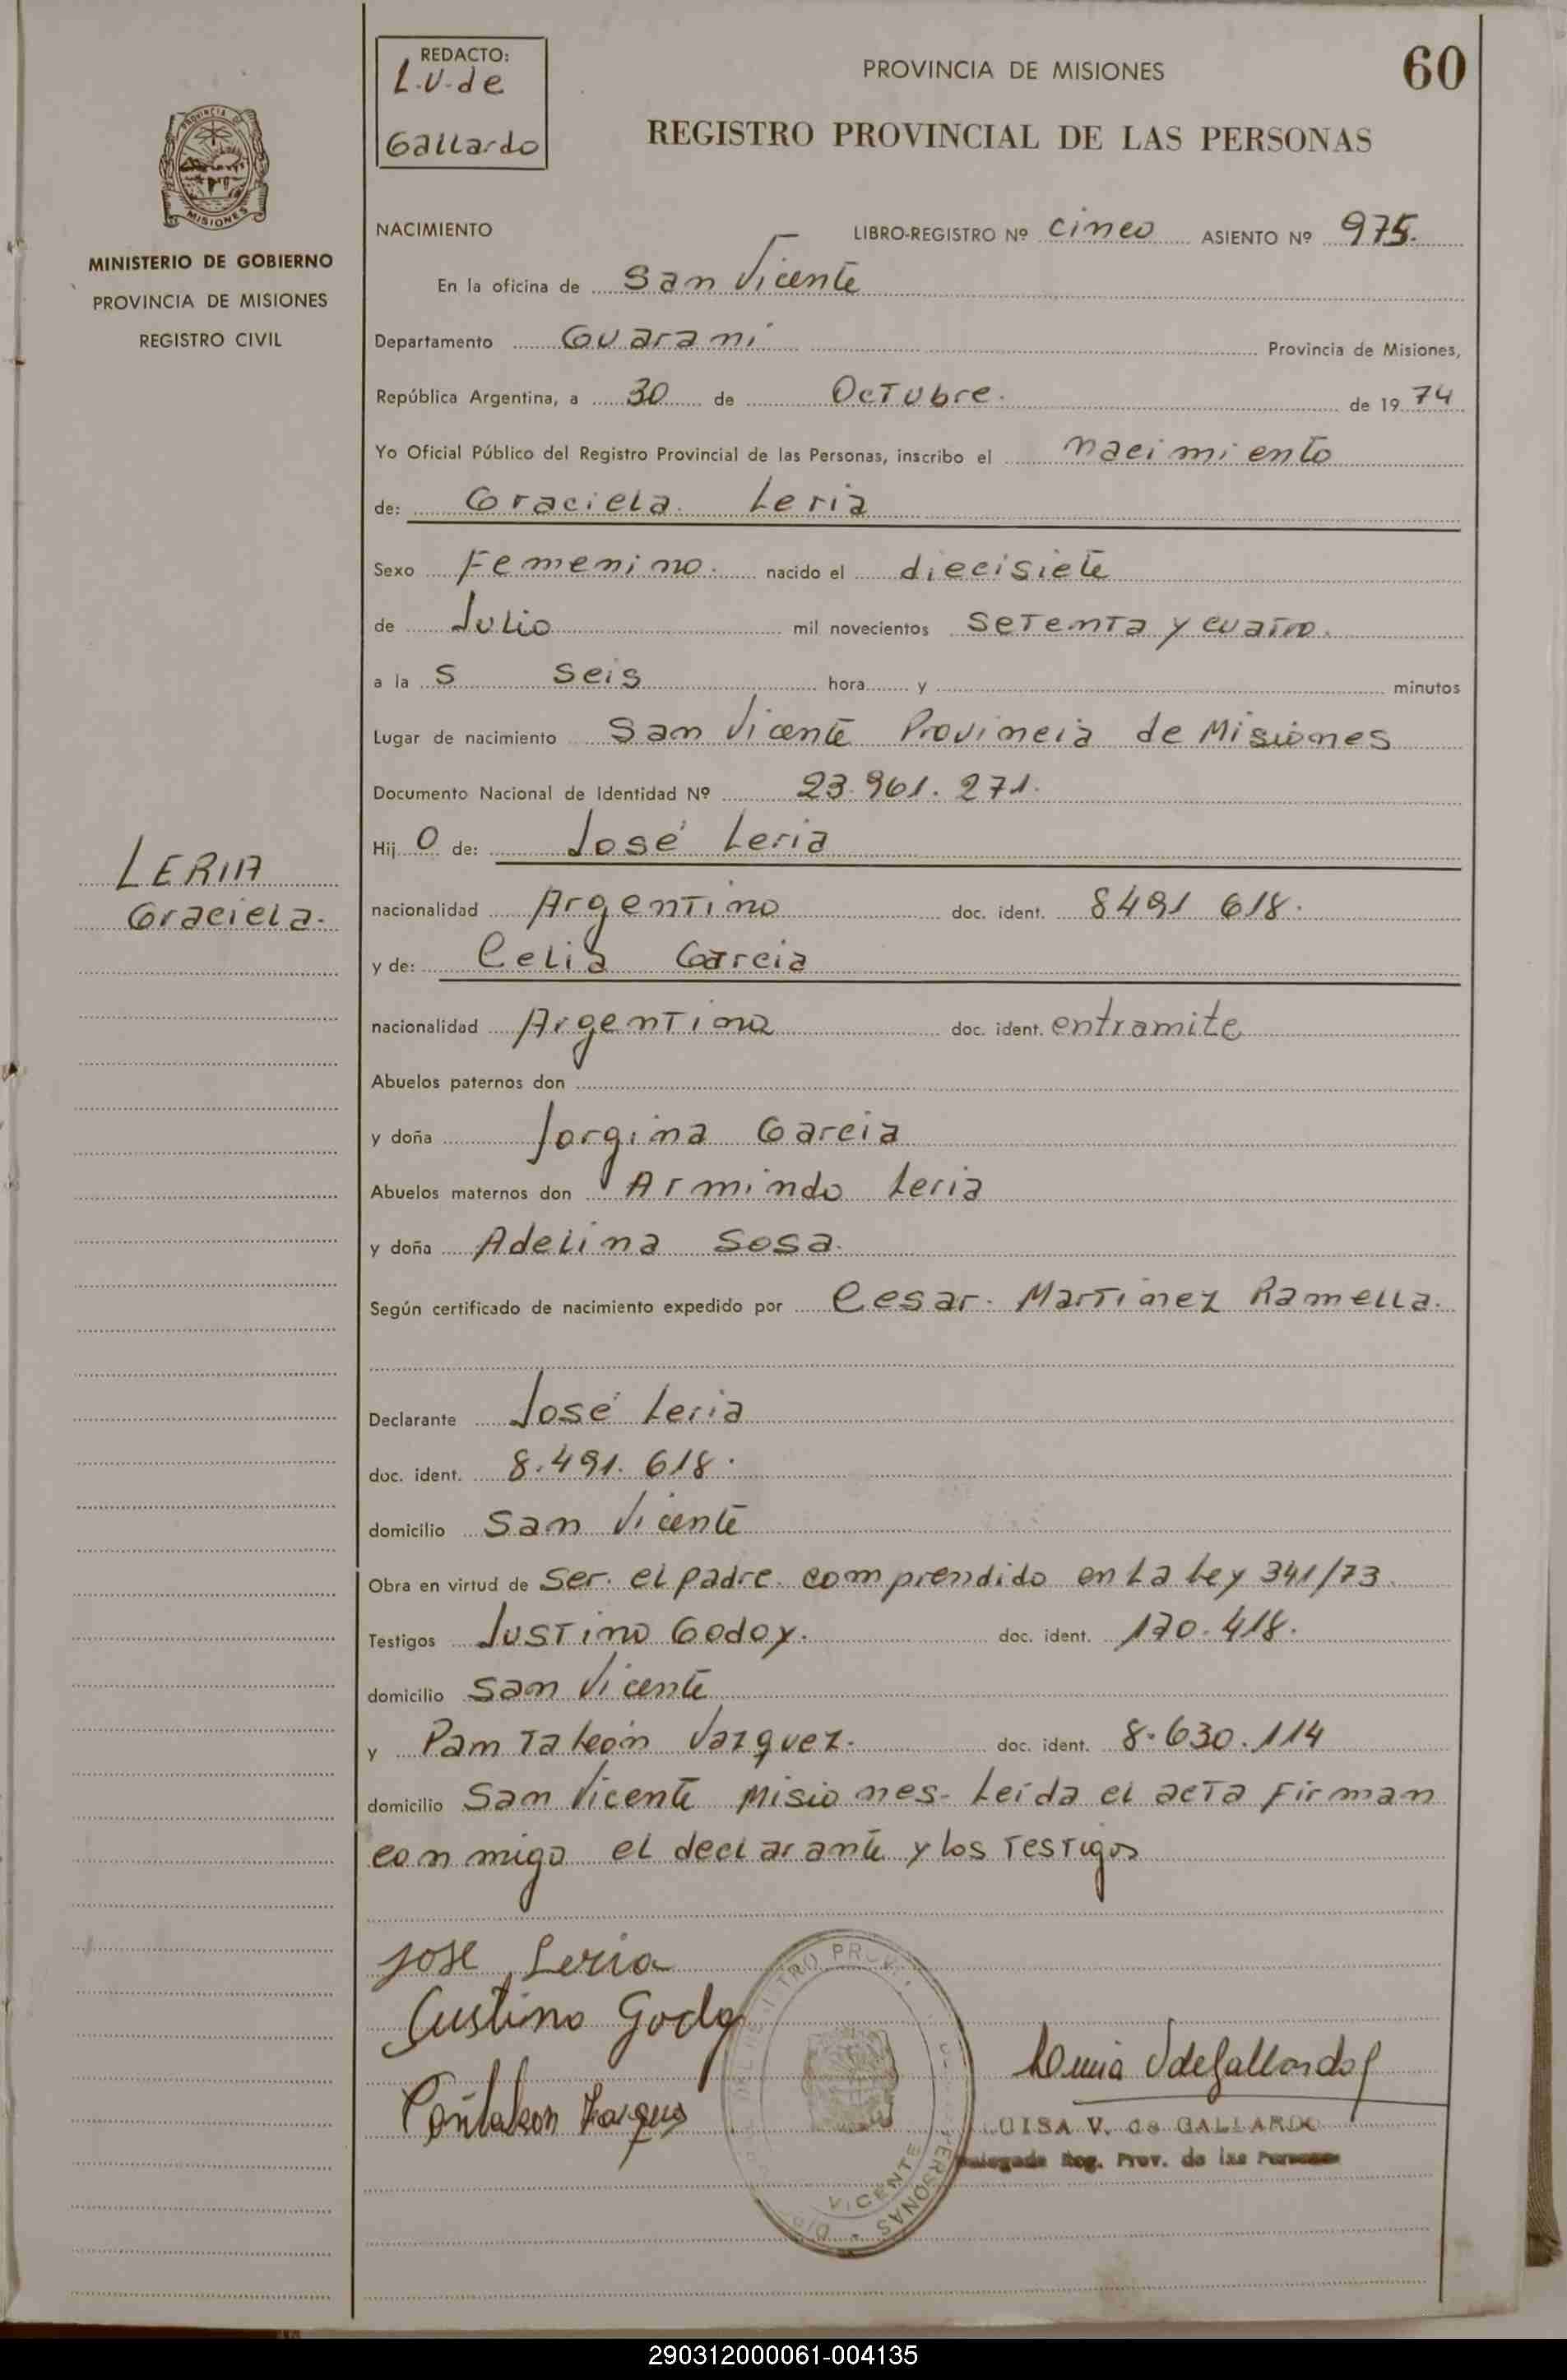 REDACTO:
L.V. de
Gallardo
PROVINCIA DE MISIONES
60
REGISTRO PROVINCIAL DE LAS PERSONAS
PROVINCIA DE
MISIONES
MINISTERIO DE GOBIERNO
PROVINCIA DE MISIONES
REGISTRO CIVIL
NACIMIENTO LIBRO-REGISTRO Nº cinco ASIENTO Nº 975.
En la oficina de San Vicente
Departamento Guaraní Provincia de Misiones,
República Argentina, a 30 de Octubre. de 1974
Yo Oficial Público del Registro Provincial de las Personas, inscribo el nacimiento
de: Graciela Leria
Sexo Femenino. nacido el diecisiete
de Julio mil novecientos setenta y cuatro.
a la s seis hora y minutos
Lugar de nacimiento San Vicente Provincia de Misiones
Documento Nacional de Identidad Nº 23.961.271.
Hij o de: José Leria
LERIA
Graciela.
nacionalidad Argentino doc. ident. 8491 618.
y de: Celia Garcia
nacionalidad Argentina doc. ident. entramite
Abuelos paternos don
y doña Jorgina Garcia
Abuelos maternos don Armindo Leria
y doña Adelina Sosa.
Según certificado de nacimiento expedido por Cesar. Martinez Ramella.
Declarante José Leria
doc. ident. 8.491.618.
domicilio San Vicente
Obra en virtud de Ser. el padre comprendido en la Ley 341/73
Testigos Justino Godoy. doc. ident. 170.418.
domicilio San Vicente
y Pantaleón Vazquez. doc. ident. 8.630.114
domicilio San Vicente Misiones- Leída el acta Firman
conmigo el declarante y los testigos
José Leria
Justino Godoy
LUISA V. de GALLARDO
Delegada Reg. Prov. de las Personas
VICENTE
PERSONAS
290312000061-004135